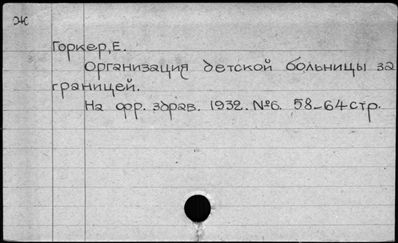 Ж
Горкер, Е.
Организация детской больницы за
границей.
На фр. здрав. 1932. №6. 58-64 стр.